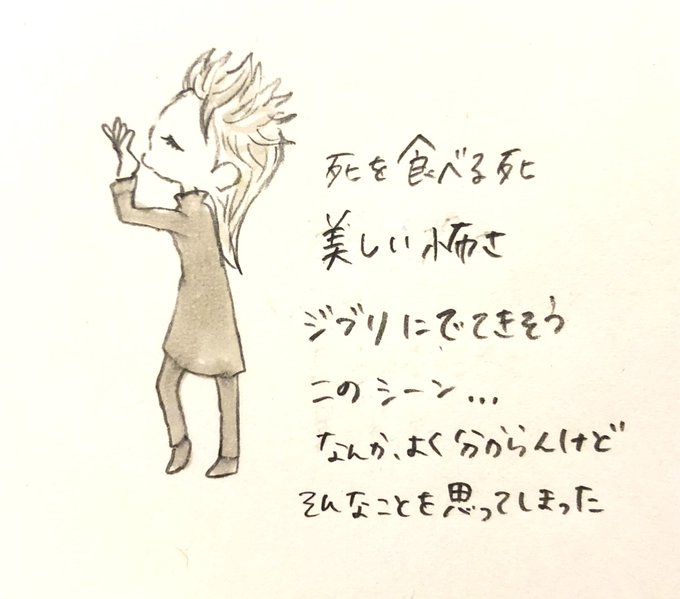 死を食べる死
美しい怖さ
ジブリにでてきそう
このシーン...
なんか、よく分からんけど
そんなことを思ってしまった